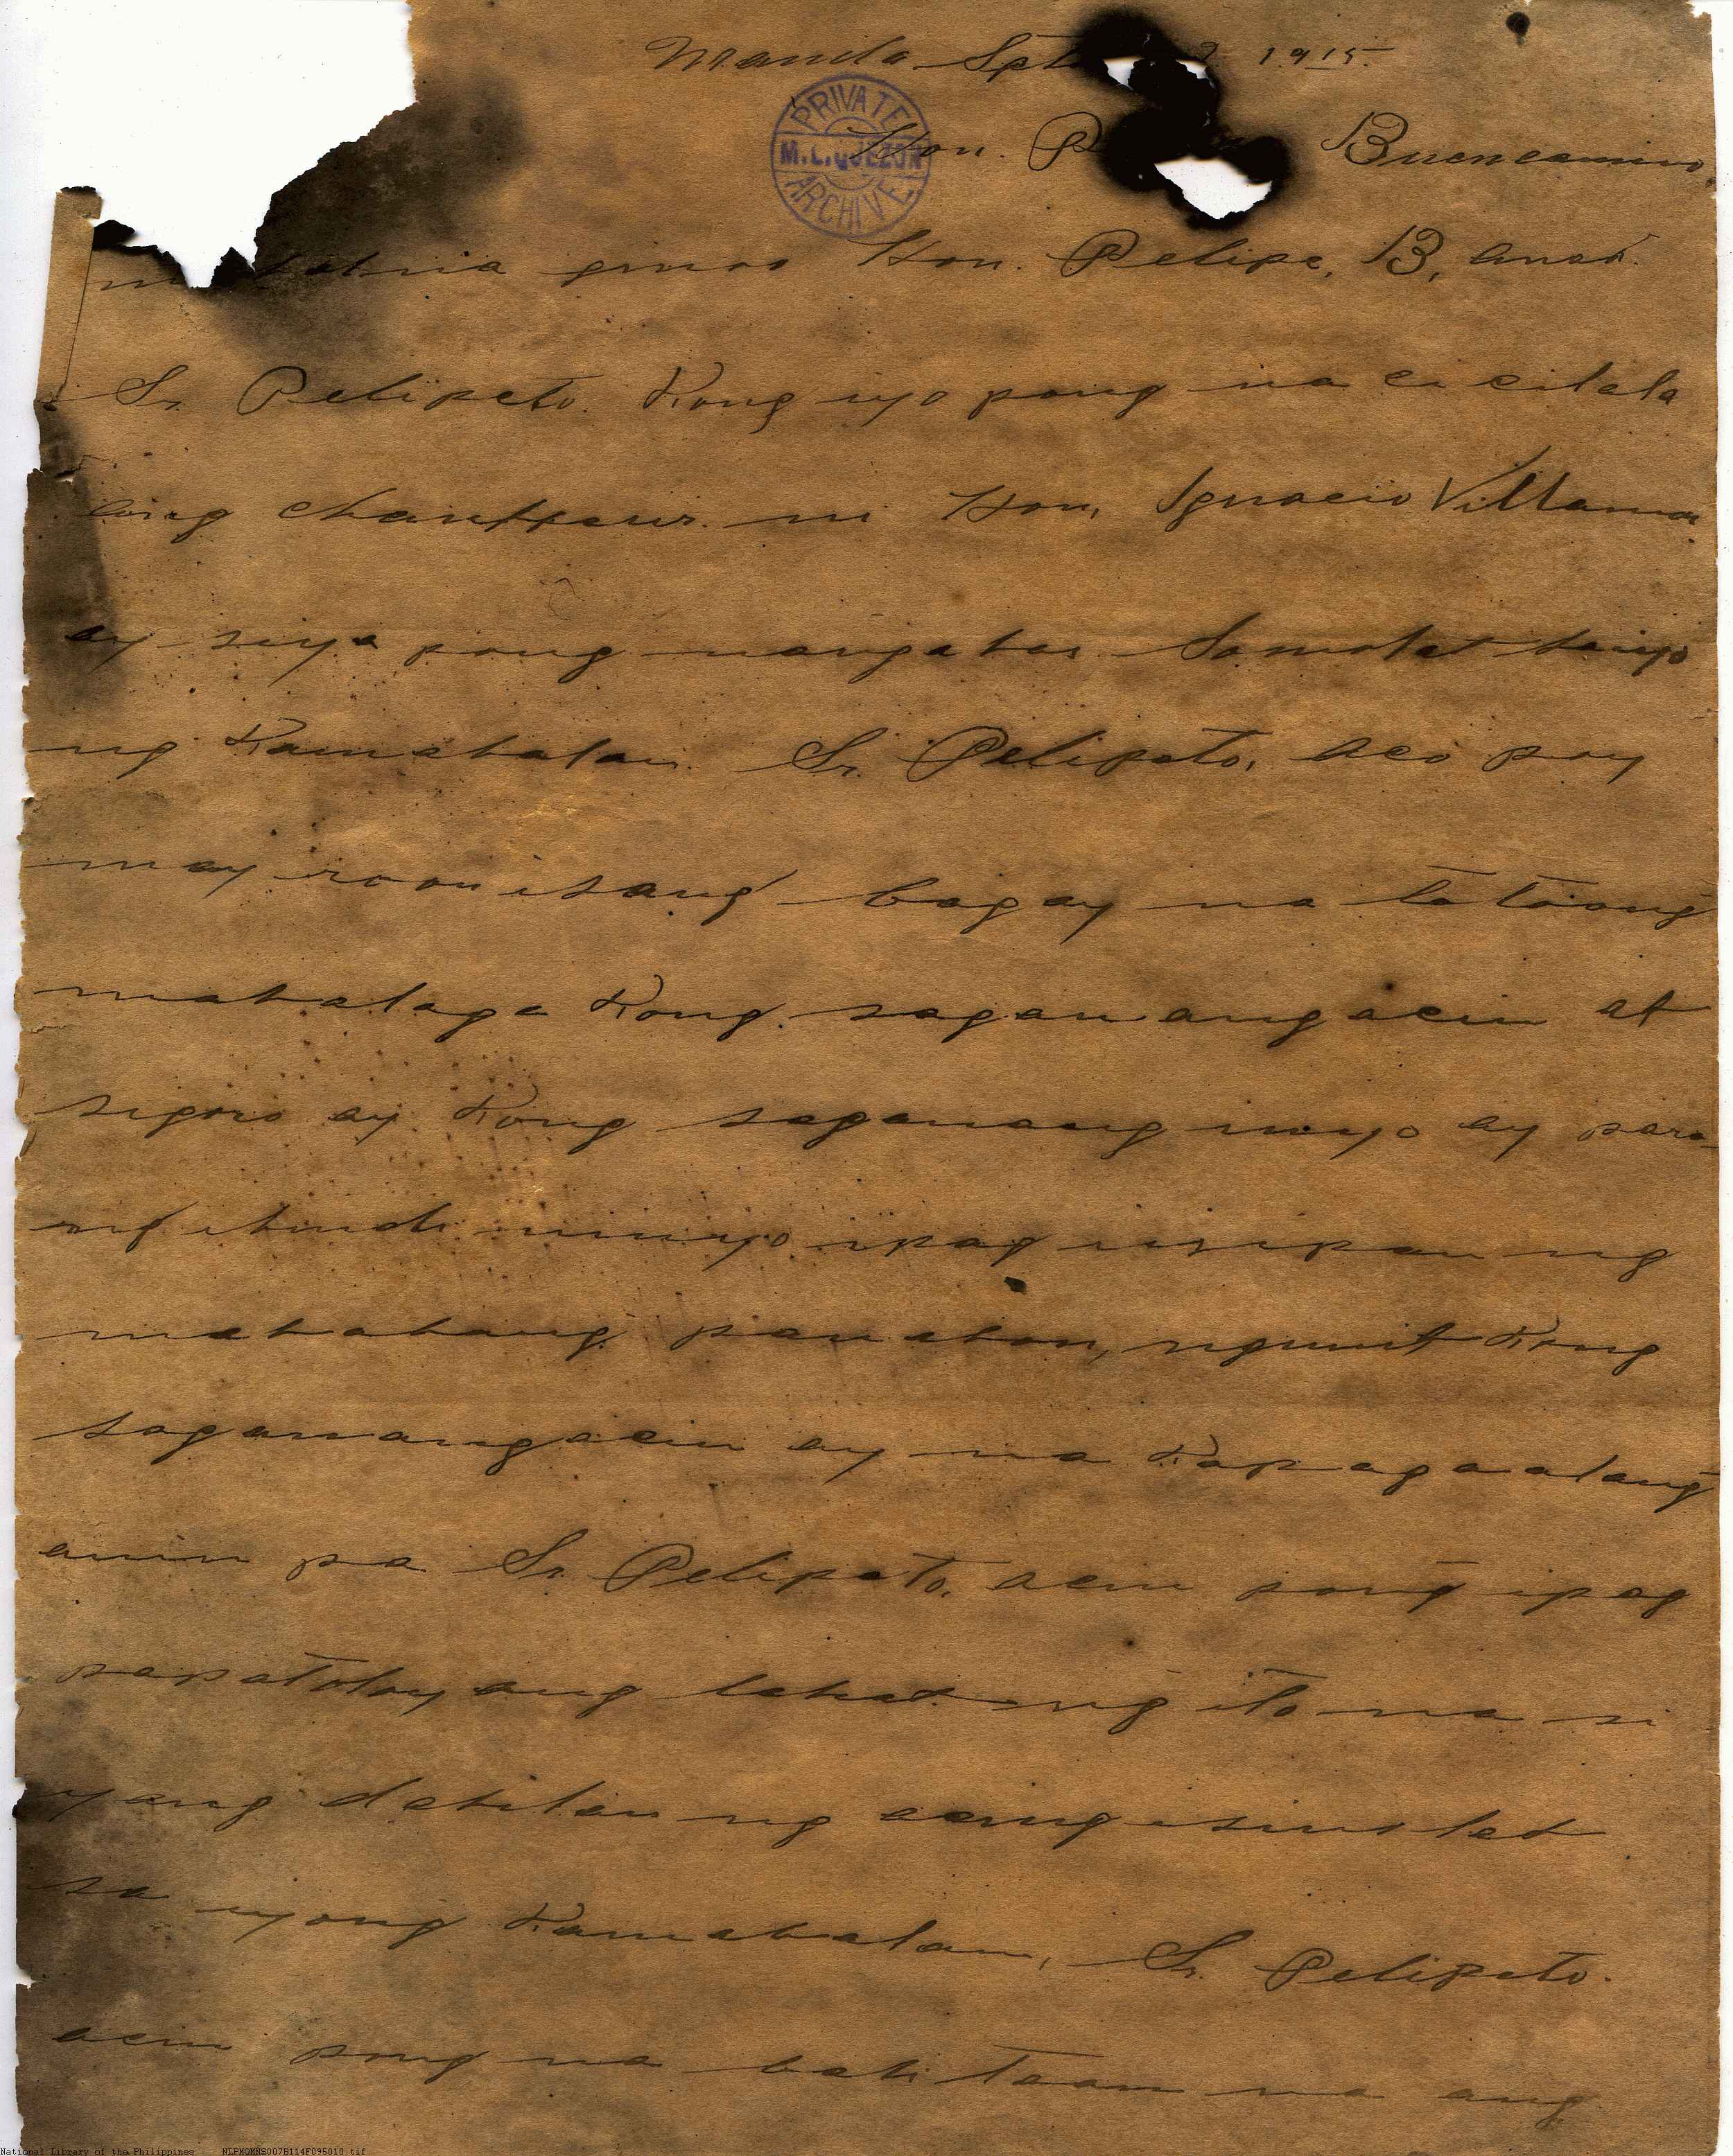 Manila Spt 9 1915
PRIVATE
M.L. QUEZON
ARCHIVE
Hon. P Buencamino,
ginoo Hon. Pelipe, B,
Sr. Pelipeto. Kong iyo pong na ci cilala
iong chauffeur. ni Hon, Ignacio Villamor
ay siya pong nangahas Somolat sa iyo
ng Kamahalan. Sr. Pelipeto, aco poy
may roon isang bagay na to toong
mahalaga Kong sagan ang acin at
sigoro ay Kong saganang inyo ay para
ng hindi ninyo ipag iisipan ng
mahabang panahon, ngunit Kong
sagan ang acin ay na Kapag aalang
anin pa Sr. Pelipeto, acin pong ipag
papatoloy ang lahat ng ito na si
yang dahilan ng acing isinolat
sa iyong Kamahalan, Sr. Pelipeto.
acin pong na bali taan na ang
National Library of the Philippines NLPMQMNS007B114F095010.tif